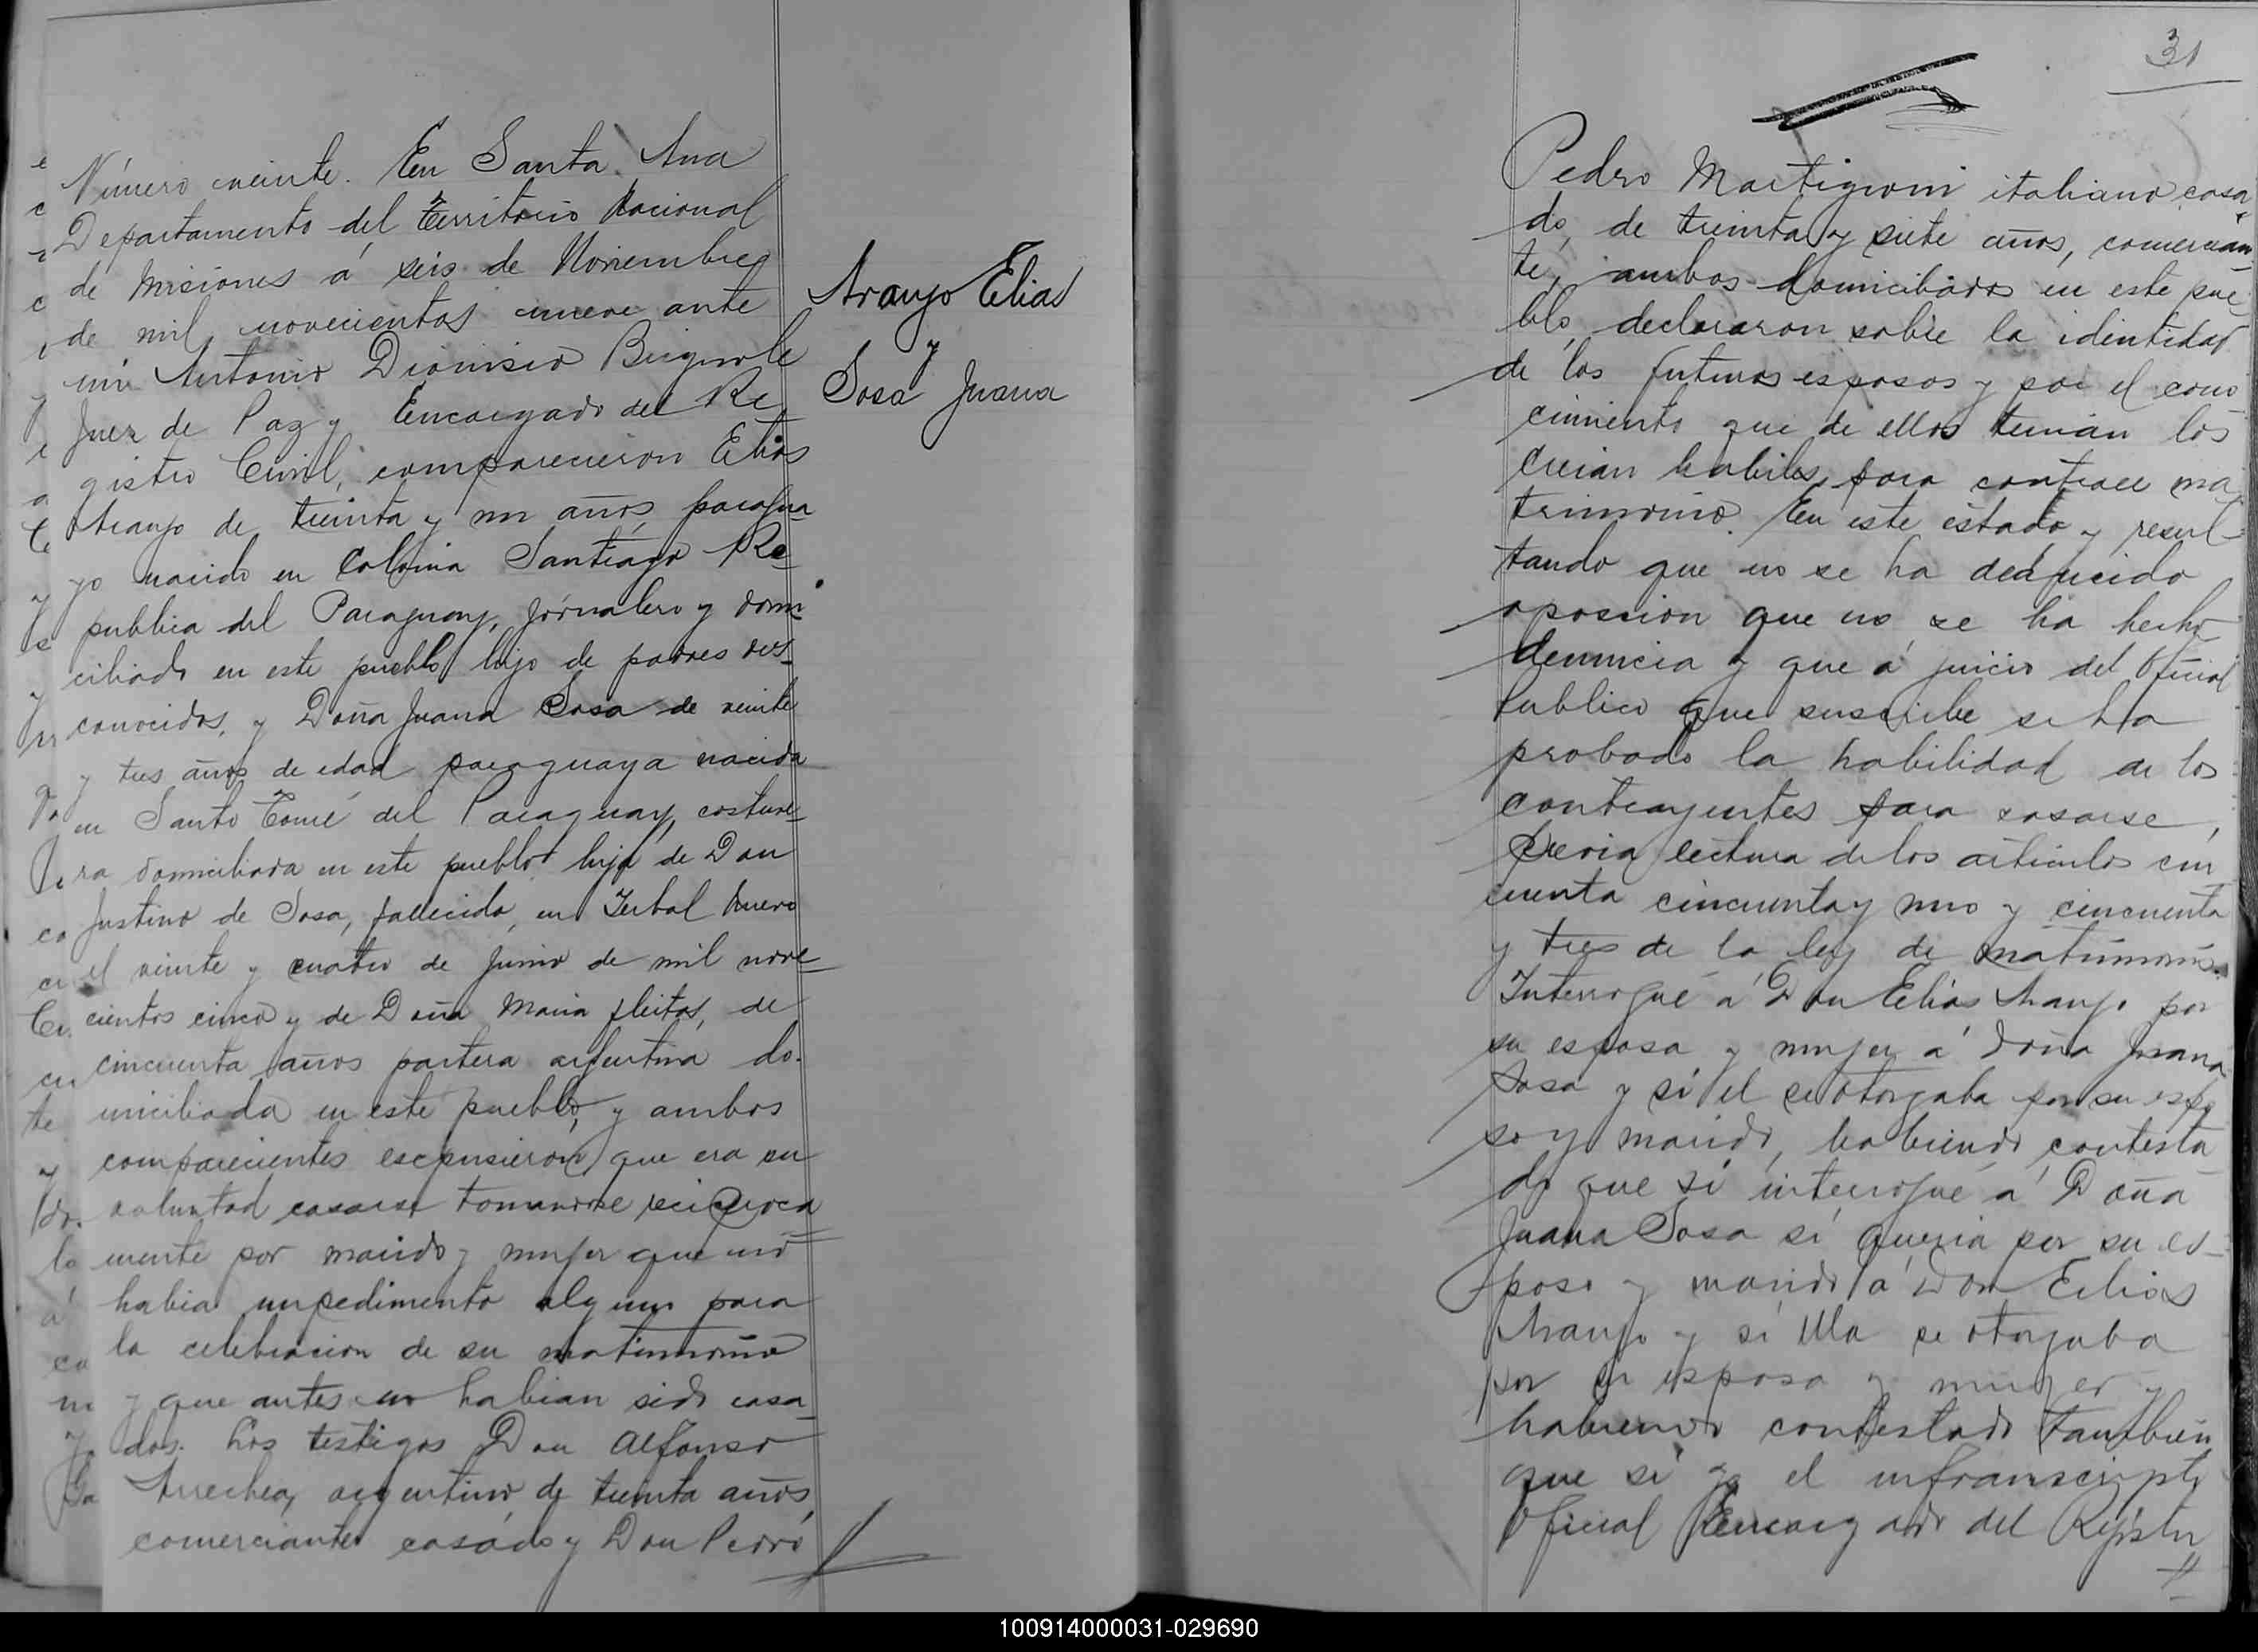 Número veinte. En Santa Ana
Departamento del territorio Nacional
de Misiones á seis de Noviembre
de mil novecientos nueve ante
mi Antonio Dionisio
Juez de Paz y Encargado del Re
gistro Civil, comparecieron Elias
Araujo de treinta y un años, paragua
yo nacido en Colonia Santiago Re
publica del Paraguay, jornalero y domi
ciliado en este pueblo hijo de padres des
conocidos, y Doña Juana Sosa de veinte
y tres años de edad paraguaya nacida
en Santo Tomé del Paraguay, costure
ra domiciliada en este pueblo hija de Don
Justino de Sosa, fallecido en Yerbal Nuevo
el veinte y cuatro de Junio de mil nove
cientos cinco y de Doña Maria fleitas, de
cincuenta años partera argentina do
miciliada en este pueblo, y ambos
comparecientes escpusieron que era su
voluntad casarse tomandose reciproca
mente por marido y mujer que no
habia impedimento alguno para
la celebracion de su matrimonio
y que antes no habian sido casa
dos. Los testigos Don Alfonso
Arrechea, argentino de treinta años,
comerciante casado y Don Pedro
Araujo Elias
y
Sosa Juana
31
Pedro Martignoni italiano casa
do, de treinta y siete años, comercian
te, ambos domiciliados en este pue
blo, declararon sobre la identidad
de los futuros esposos y por el cono
cimiento que de ellos tenian los
creian habiles para contraer ma
trimonio. En este estado y resul
tando que no se ha deducido
oposicion que no se ha hecho
denuncia y que á juicio del Oficial
Publico que suscribe se ha
probado la habilidad de los
contrayentes para casarse,
previa lectura de los articulos cin
cuenta cincuenta y uno y cincuenta
y tres de la ley de matrimonio.
Interrogué á Don Elias Araujo por
su esposa y mujer á Doña Juana
Sosa y si el se otorgaba por su espo
so y marido, habiendo contesta
do que si interrogué á Doña
Juana Sosa si queria por su es
poso y marido á Don Elias
Araujo y si ella se otorgaba
por su esposa y mujer y
habiendo contestado tambien
que si yo el infranscripto
Oficial Encargado del Registro
100914000031-029690